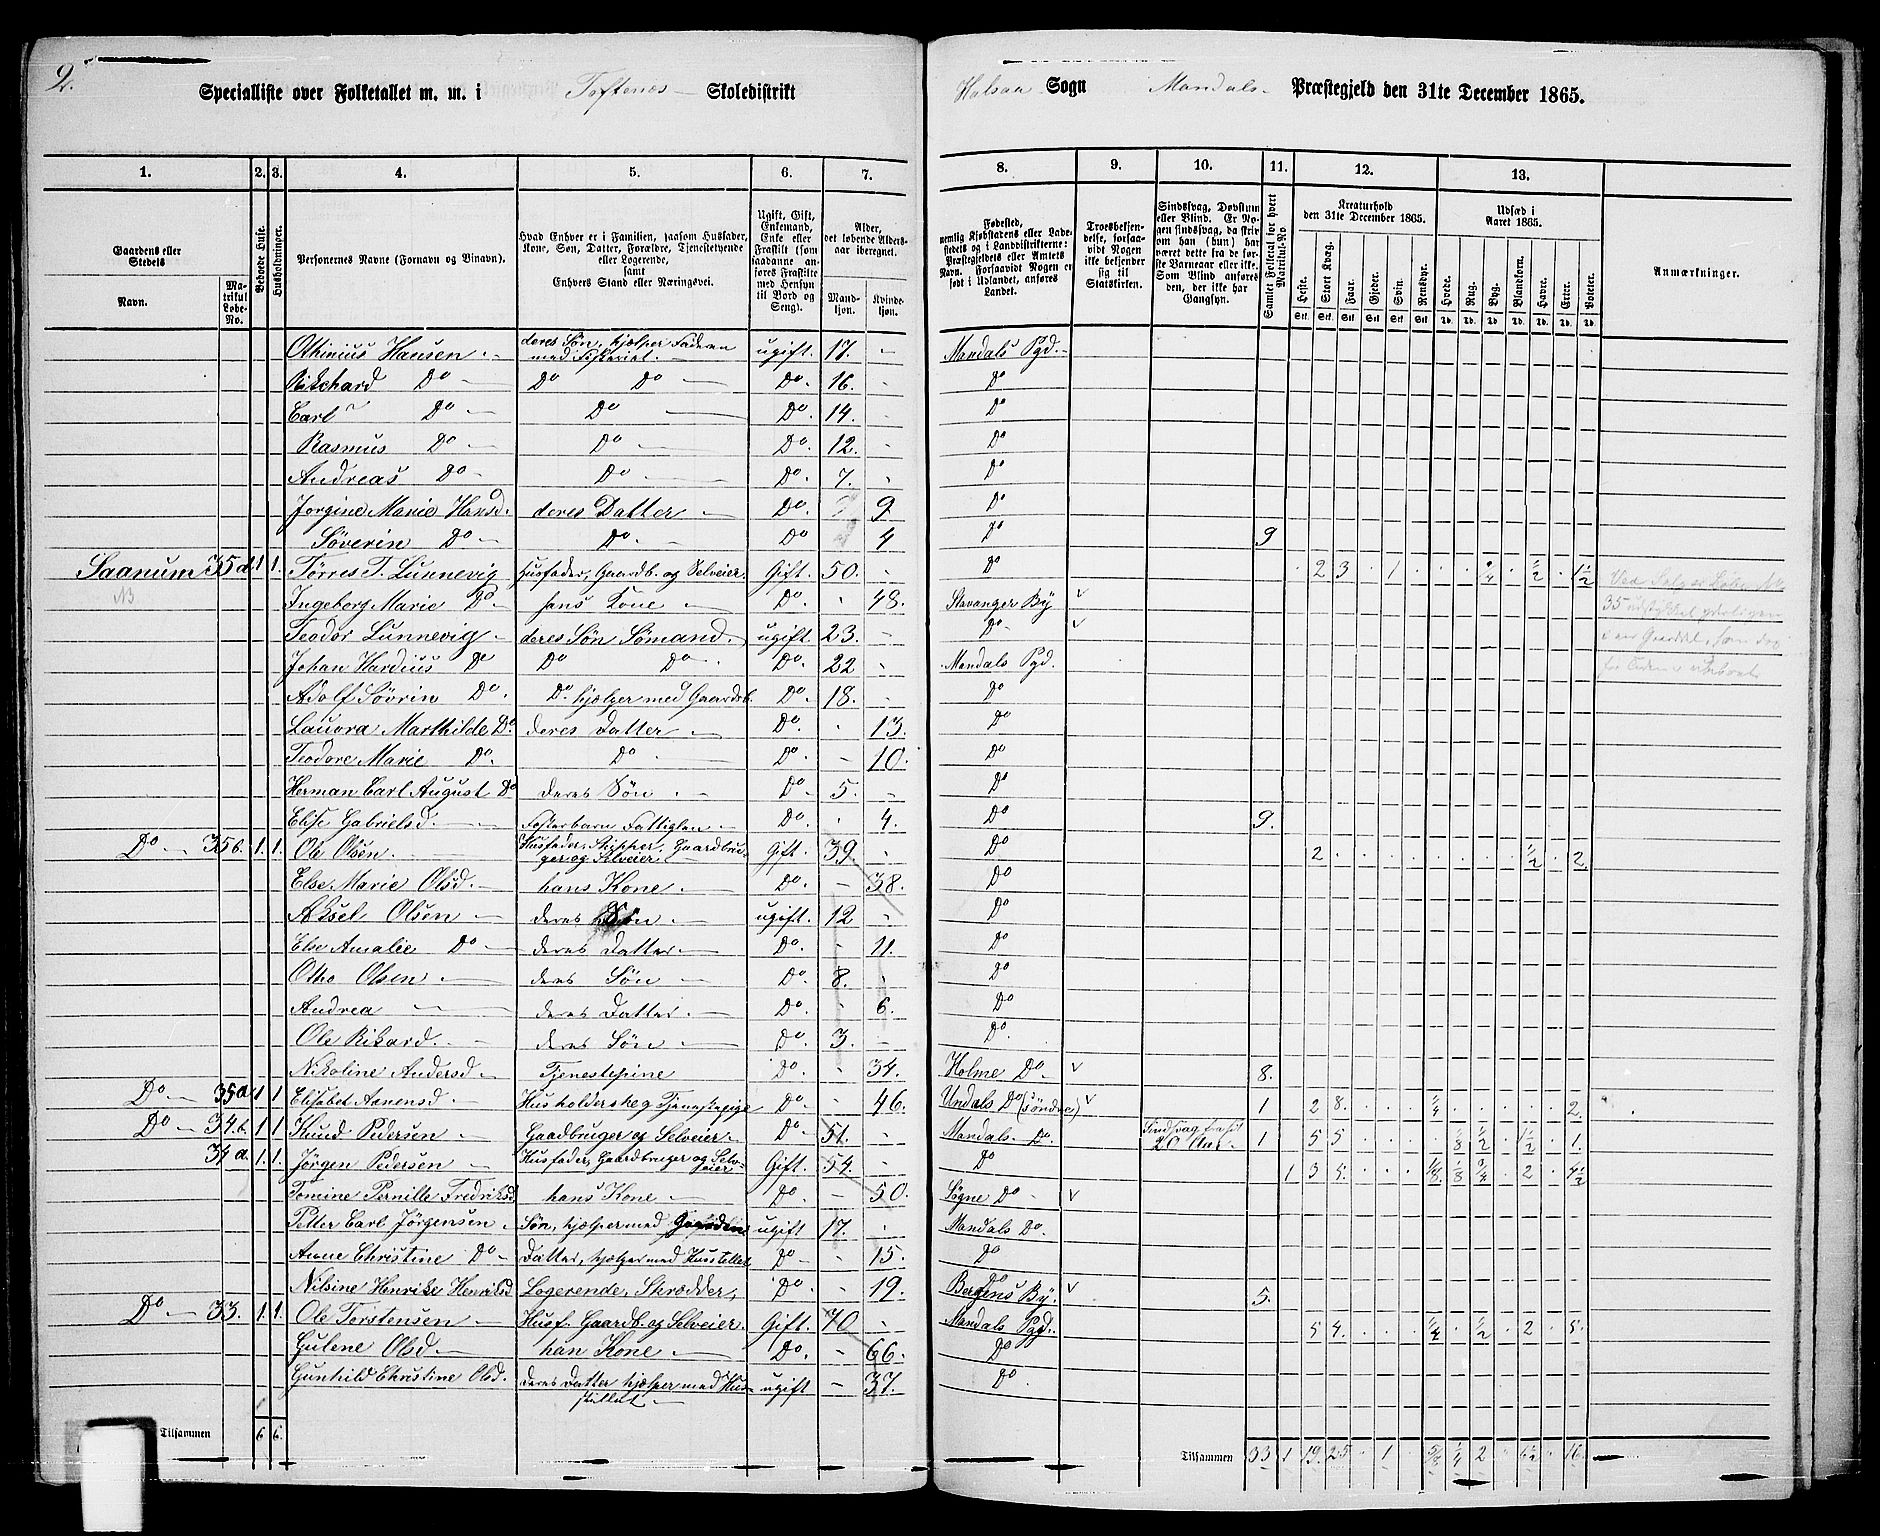 2.
Specialliste over Folketallet m. m. i Toftenæs Skoledistrikt Halsaa Sogn Mandals Præstegjeld den 31te December 1865.
1. 2. 3. 4. 5. 6. 7. 8. 9. 10. 11. 12. 13.
Gaardens eller Stedets
Navn.
Matrikul Løbe-No.
Beboede Huse.
Husholdninger.
Personernes Navne (Fornavn og Binavn).
Hvad Enhver er i Familien, saasom Husfader, Kone, Søn, Datter, Forældre, Tjenestetyende eller Logerende, samt Enhvers Stand eller Næringsvei.
Ugift, Gift, Enkemand, Enke eller Fraskilt (som saadanne anføres Fraskilte med Hensyn til Bord og Seng).
Alder, det løbende Aldersaar iberegnet.
Mandkjøn.
Kvindekjøn.
Fødested, nemlig Kjøbstadens eller Ladestedets og i Landdistrikterne: Præstegjeldets eller Amtets Navn. Forsaavidt Nogen er født i Udlandet, anføres Landet.
Troesbekjendelse, forsaavidt Nogen ikke bekjender sig til Statskirken.
Sindssvag, Døvstum eller Blind. Er Nogen sindssvag, da skrives om han (hun) har været dette fra de første Barneaar eller ikke. Som Blind anføres den, der ikke har Gangsyn.
Samlet Folketal for hvert Matrikul-No
Kreaturhold den 31te December 1865.
Heste. Stort Kvæg. Faar. Gjeder. Svin. Rensdyr.
Udsæd i Aaret 1865.
Hvede. Rug. Byg. Blandkorn. Havre. Erter. Poteter.
Anmærkninger.
Othinius Hansen deres Søn, hjælper Faderen med Fiskeriet. ugift. 17. Mandals Pgd.
Ritchard Do Do Do Do. 16. Do
Carl Do Do Do. 14. Do
Rasmus Do Do Do. 12. Do
Andreas Do Do Do. 7. Do
Jorgine Marie Hansd. deres Datter Do. 9 Do
Söverin Do Do. Do 4 Do 9
Saanum 35a 1 1. Törres T. Lunnevig Husfader, Gaardb. og Selveier. Gift. 50. Do 2 3 1 1/2 1 1/2
Ingeborg Marie Do hans Kone Do. 48. Stavanger By
Teodor Lunnevig deres Søn Sømand. ugift. 23. Do
Johan Hardius Do Do Do Do. 22 Mandals Pgd.
Adolf Sövrin Do. Do. hjælper med Gaardsb. Do. 18. Do
Lauora Marthilde Do. deres Datter Do. 13. Do
Teodore Marie Do. Do Do. 10. Do
Herman Carl August Do deres Søn Do 5. Do
Elise Gabrielsd. Fosterbarn Fattiglem Do. 4. Do 9.
Do 35b. 1. 1. Ole Olsen. Husfader, Skipper, Gaardbruger og Selveier Gift. 39. Do 2 1/2 2.
Else Marie Olsd. hans Kone. Do. 38. Do
Aksel Olsen deres Søn ugift. 12 Do
Else Amalie Do deres Datter Do. 11. Do
Otho Olsen deres Søn Do 8. Do
Andrea deres Datter Do. 6. Do
Ole Rikard. deres Søn Do. 3. Do.
Nikoline Andersd Tjenestepine Do. 34. Holme Do 8.
Do 35a 1 1 Elisabet Aanensd. Husholderske og Tjenestepige Do. 46. Undals Do (Söndre) 1 2 8. 1/4 2.
Do 34.b. 1 1. Knud Pedersen Gaadbruger og Selveier. Do. 51. Mandals Do. 20 Aar. 1 5 5 1/8 1/2 1 1/2 1.
34a. 1. 1. Jörgen Pedersen Husfader, Gaardbruger og Selveier Gift. 54. Do 1 3 5. 1/8. 1/8 2 4 1/2
Tomine Pernille Fredriksd hans Kone Do. 50. Søgne Do
Petter Carl Jörgensen Søn, hjælper med Gaarden ugift 17. Mandals Do.
Anne Christine Do Datter, hjælper med Husstellet Do 15. Do
Nilsine Henrike Henriksd. Logerende, Skrædder, Do. 19. Do Bergens By. 5.
Do 33. 1. 1. Ole Torstensen Husf. Gaardb. og Selveier. Gift. 70 Mandals Pgd. 5 4. 1/4 1/2 2 5.
Gulene Olsd han Kone Do. 66. Do
Gunhild Christine Olsd. deres Datter hjælper med Husstellet ugift 37. Do
Tilsammen 6 6.
Tilsammen 33 1 19 25 1 5/8 1/4 2 6 1/2 16